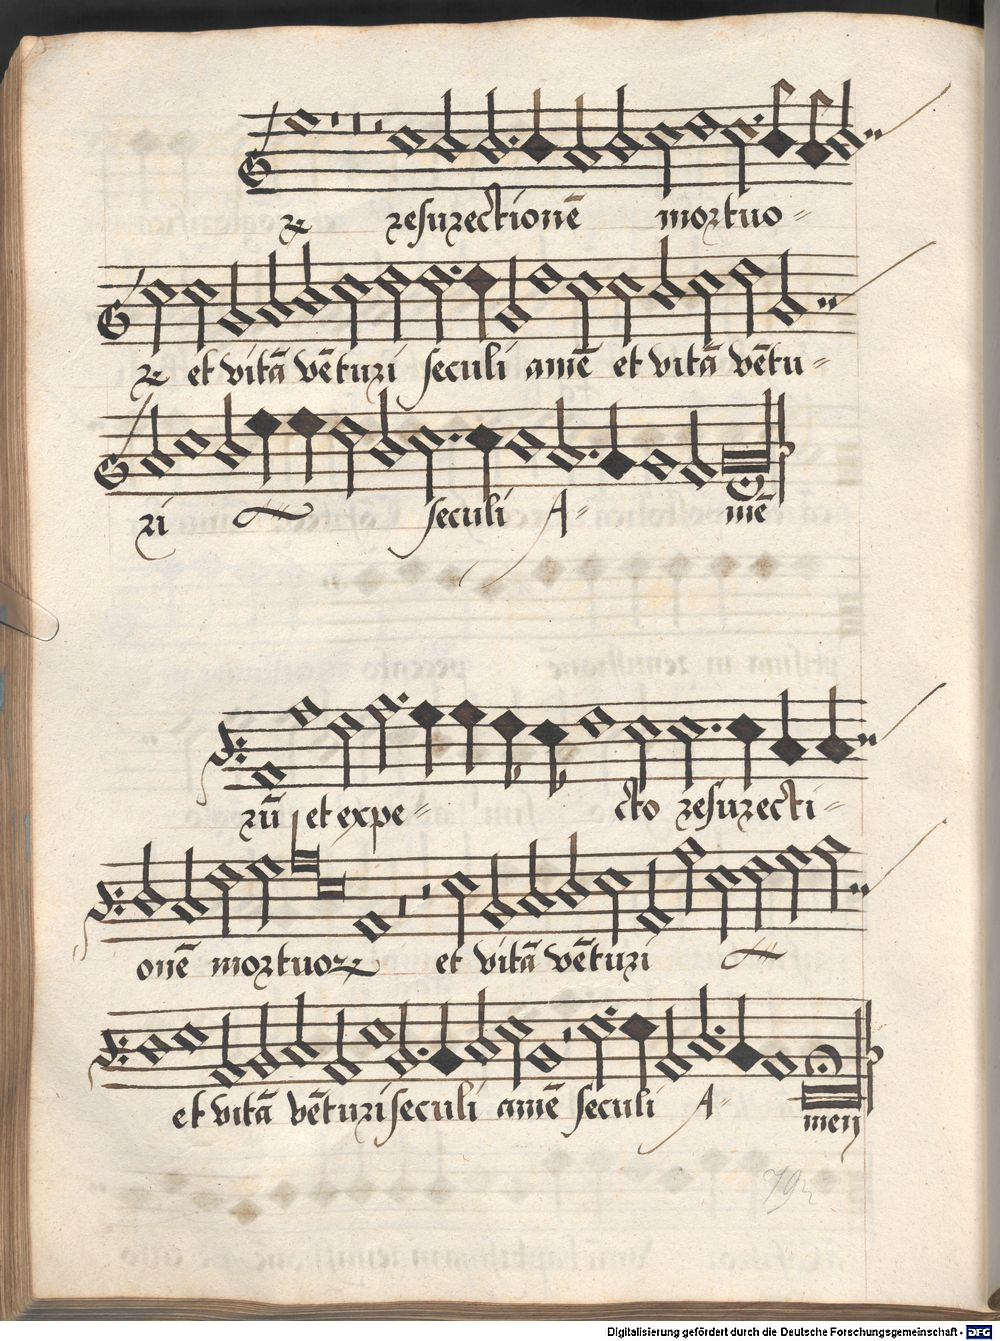 ꝝ resurrectionē mortuo=
ꝝ et vitā vēturi seculi amē et vitā vētu=
ri seculi A= mē
rū et expe= cto resurrecti=
onē mortuoꝝ et vitā vēturi
et vitā vēturi seculi amē seculi A= men
Digitalisierung gefördert durch die Deutsche Forschungsgemeinschaft - DFG